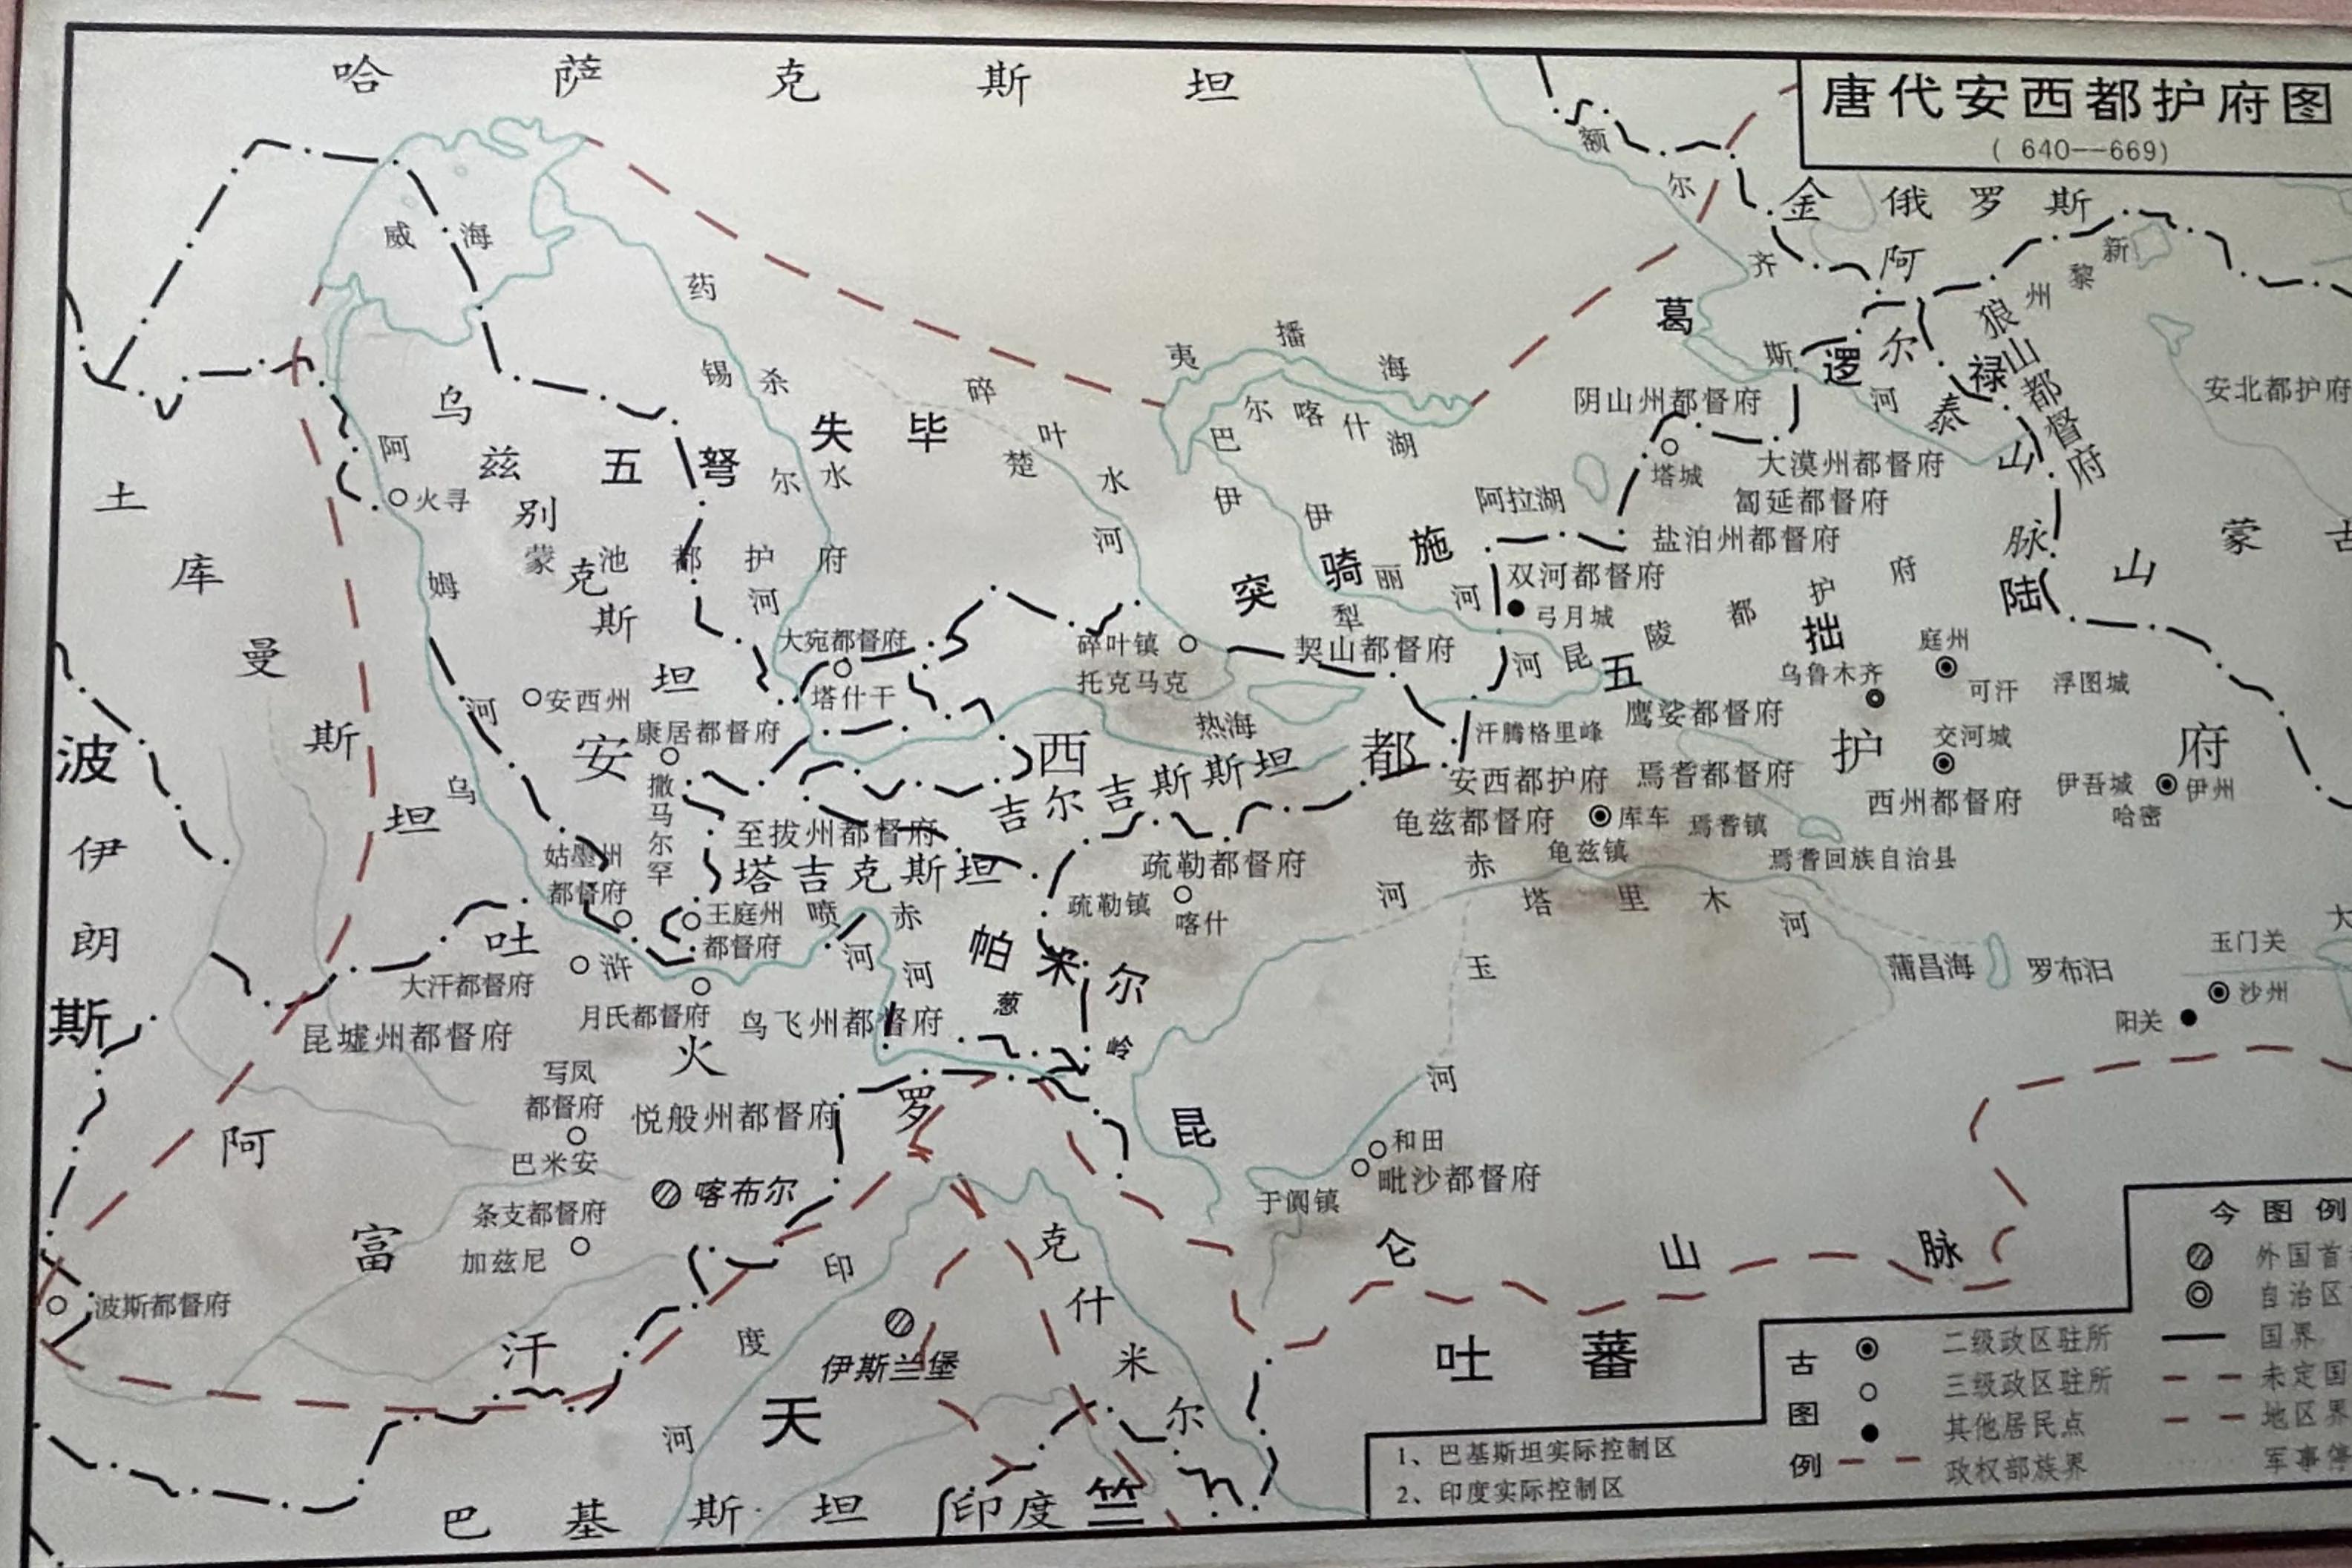 唐代安西都护府图
( 640——669)
哈萨克斯坦
俄罗斯
额尔齐斯河
金
阿尔泰山脉
新黎州
狼山都督府
安北都护府
葛逻禄
威海
药杀水
锡尔河
夷播海
巴尔喀什湖
碎叶水
楚河
乌兹别克斯坦
五弩失毕
阿姆河
乌
火寻
蒙池都护府
土库曼斯坦
阴山州都督府
塔城
大漠州都督府
匐延都督府
盐泊州都督府
阿拉湖
双河都督府
弓月城
伊犁河
伊丽河
突骑施
昆陵都护府
五
拙
陆
山
蒙古
大宛都督府
塔什干
碎叶镇
托克马克
契山都督府
热海
庭州
乌鲁木齐
可汗
浮图城
鹰娑都督府
汗腾格里峰
安西州
康居都督府
撒马尔罕
安西都护府
吉尔吉斯斯坦
安西都护府
焉耆都督府
交河城
西州都督府
伊吾城
伊州
哈密
龟兹都督府
库车
焉耆镇
龟兹镇
焉耆回族自治县
波斯
伊朗
至拔州都督府
姑墨州
都督府
塔吉克斯坦
疏勒都督府
疏勒镇
喀什
赤河
塔里木河
王庭州
都督府
喷赤河
河
帕米尔
葱岭
吐火罗
浒
大汗都督府
月氏都督府
鸟飞州都督府
昆墟州都督府
玉河
蒲昌海
罗布泊
玉门关
沙州
阳关
大
写凤
都督府
悦般州都督府
巴米安
喀布尔
条支都督府
加兹尼
阿富汗
波斯都督府
和田
毗沙都督府
于阗镇
昆仑山脉
印度河
克什米尔
伊斯兰堡
天竺
吐蕃
巴基斯坦
印度
1、巴基斯坦实际控制区
2、印度实际控制区
古图例
二级政区驻所
三级政区驻所
其他居民点
政权部族界
今图例
外国首
自治区
国界
未定国
地区界
军事停